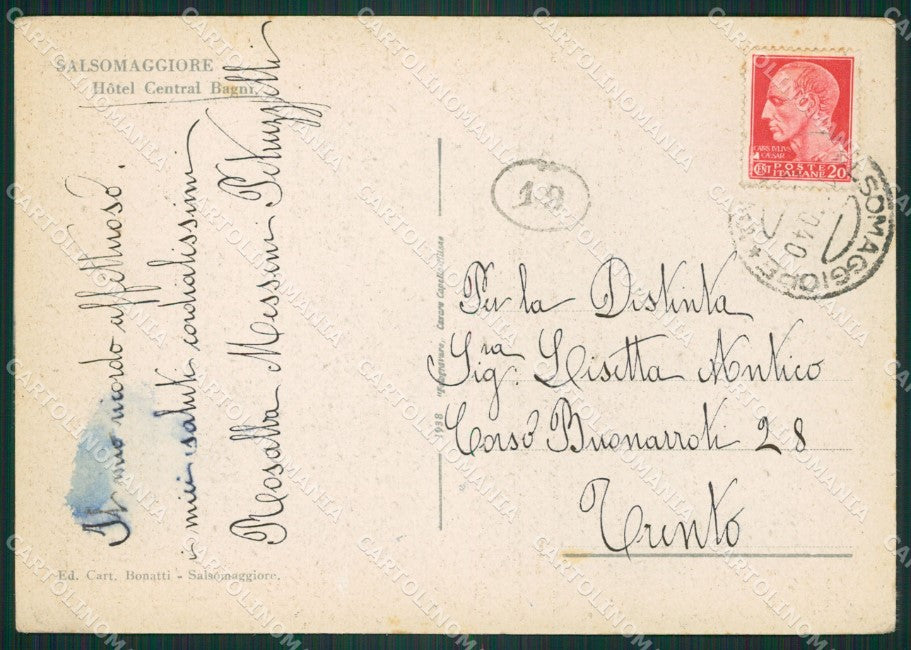 SALSOMAGGIORE
Hôtel Central Bagni.
Il mio ricordo affettuoso.
i miei saluti cordialissimi
Rosalba Messini
CAIVS IVLIVS
CAESAR
CENT POSTE ITALIANE 20
SALSOMAGGIORE
Per la Distinta
Sig.ra Lisetta Antico
Corso Buonarroti 28
Trento
1938
Ed. Cart. Bonatti - Salsomaggiore.
CARTOLINOMANIA